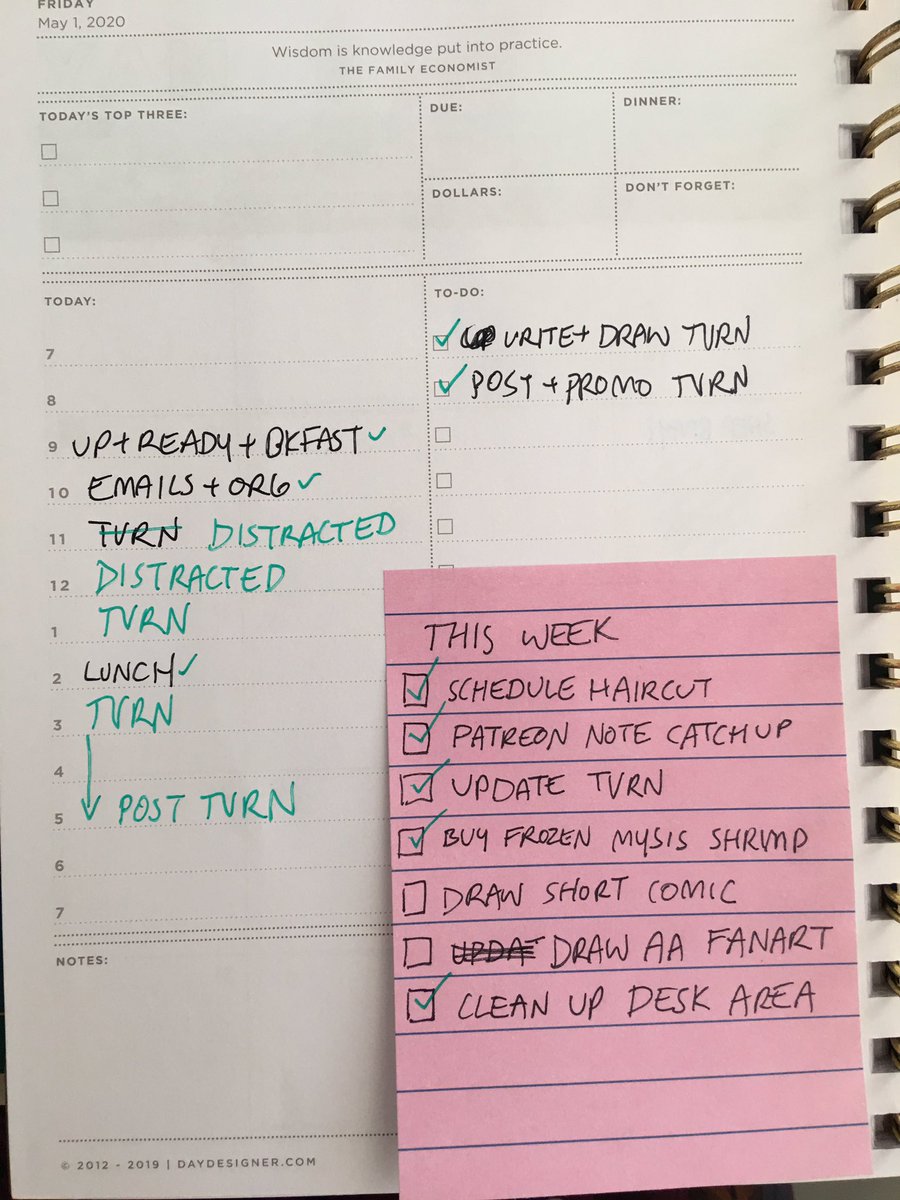 FRIDAY
May 1, 2020
Wisdom is knowledge put into practice.
THE FAMILY ECONOMIST
TODAY'S TOP THREE:
DUE:
DINNER:
DOLLARS:
DON'T FORGET:
TODAY:
7
8
9 UP + READY + BKFAST ✓
10 EMAILS + ORG ✓
11 TVRN DISTRACTED
12 DISTRACTED
1 TVRN
2 LUNCH ✓
3 TVRN
4
5 POST TVRN
6
7
NOTES:
TO-DO:
WRITE + DRAW TVRN
POST + PROMO TVRN
THIS WEEK
SCHEDULE HAIRCUT
PATREON NOTE CATCHUP
UPDATE TVRN
BUY FROZEN MYSIS SHRIMP
DRAW SHORT COMIC
UPDAT DRAW AA FANART
CLEAN UP DESK AREA
© 2012 - 2019 | DAYDESIGNER.COM